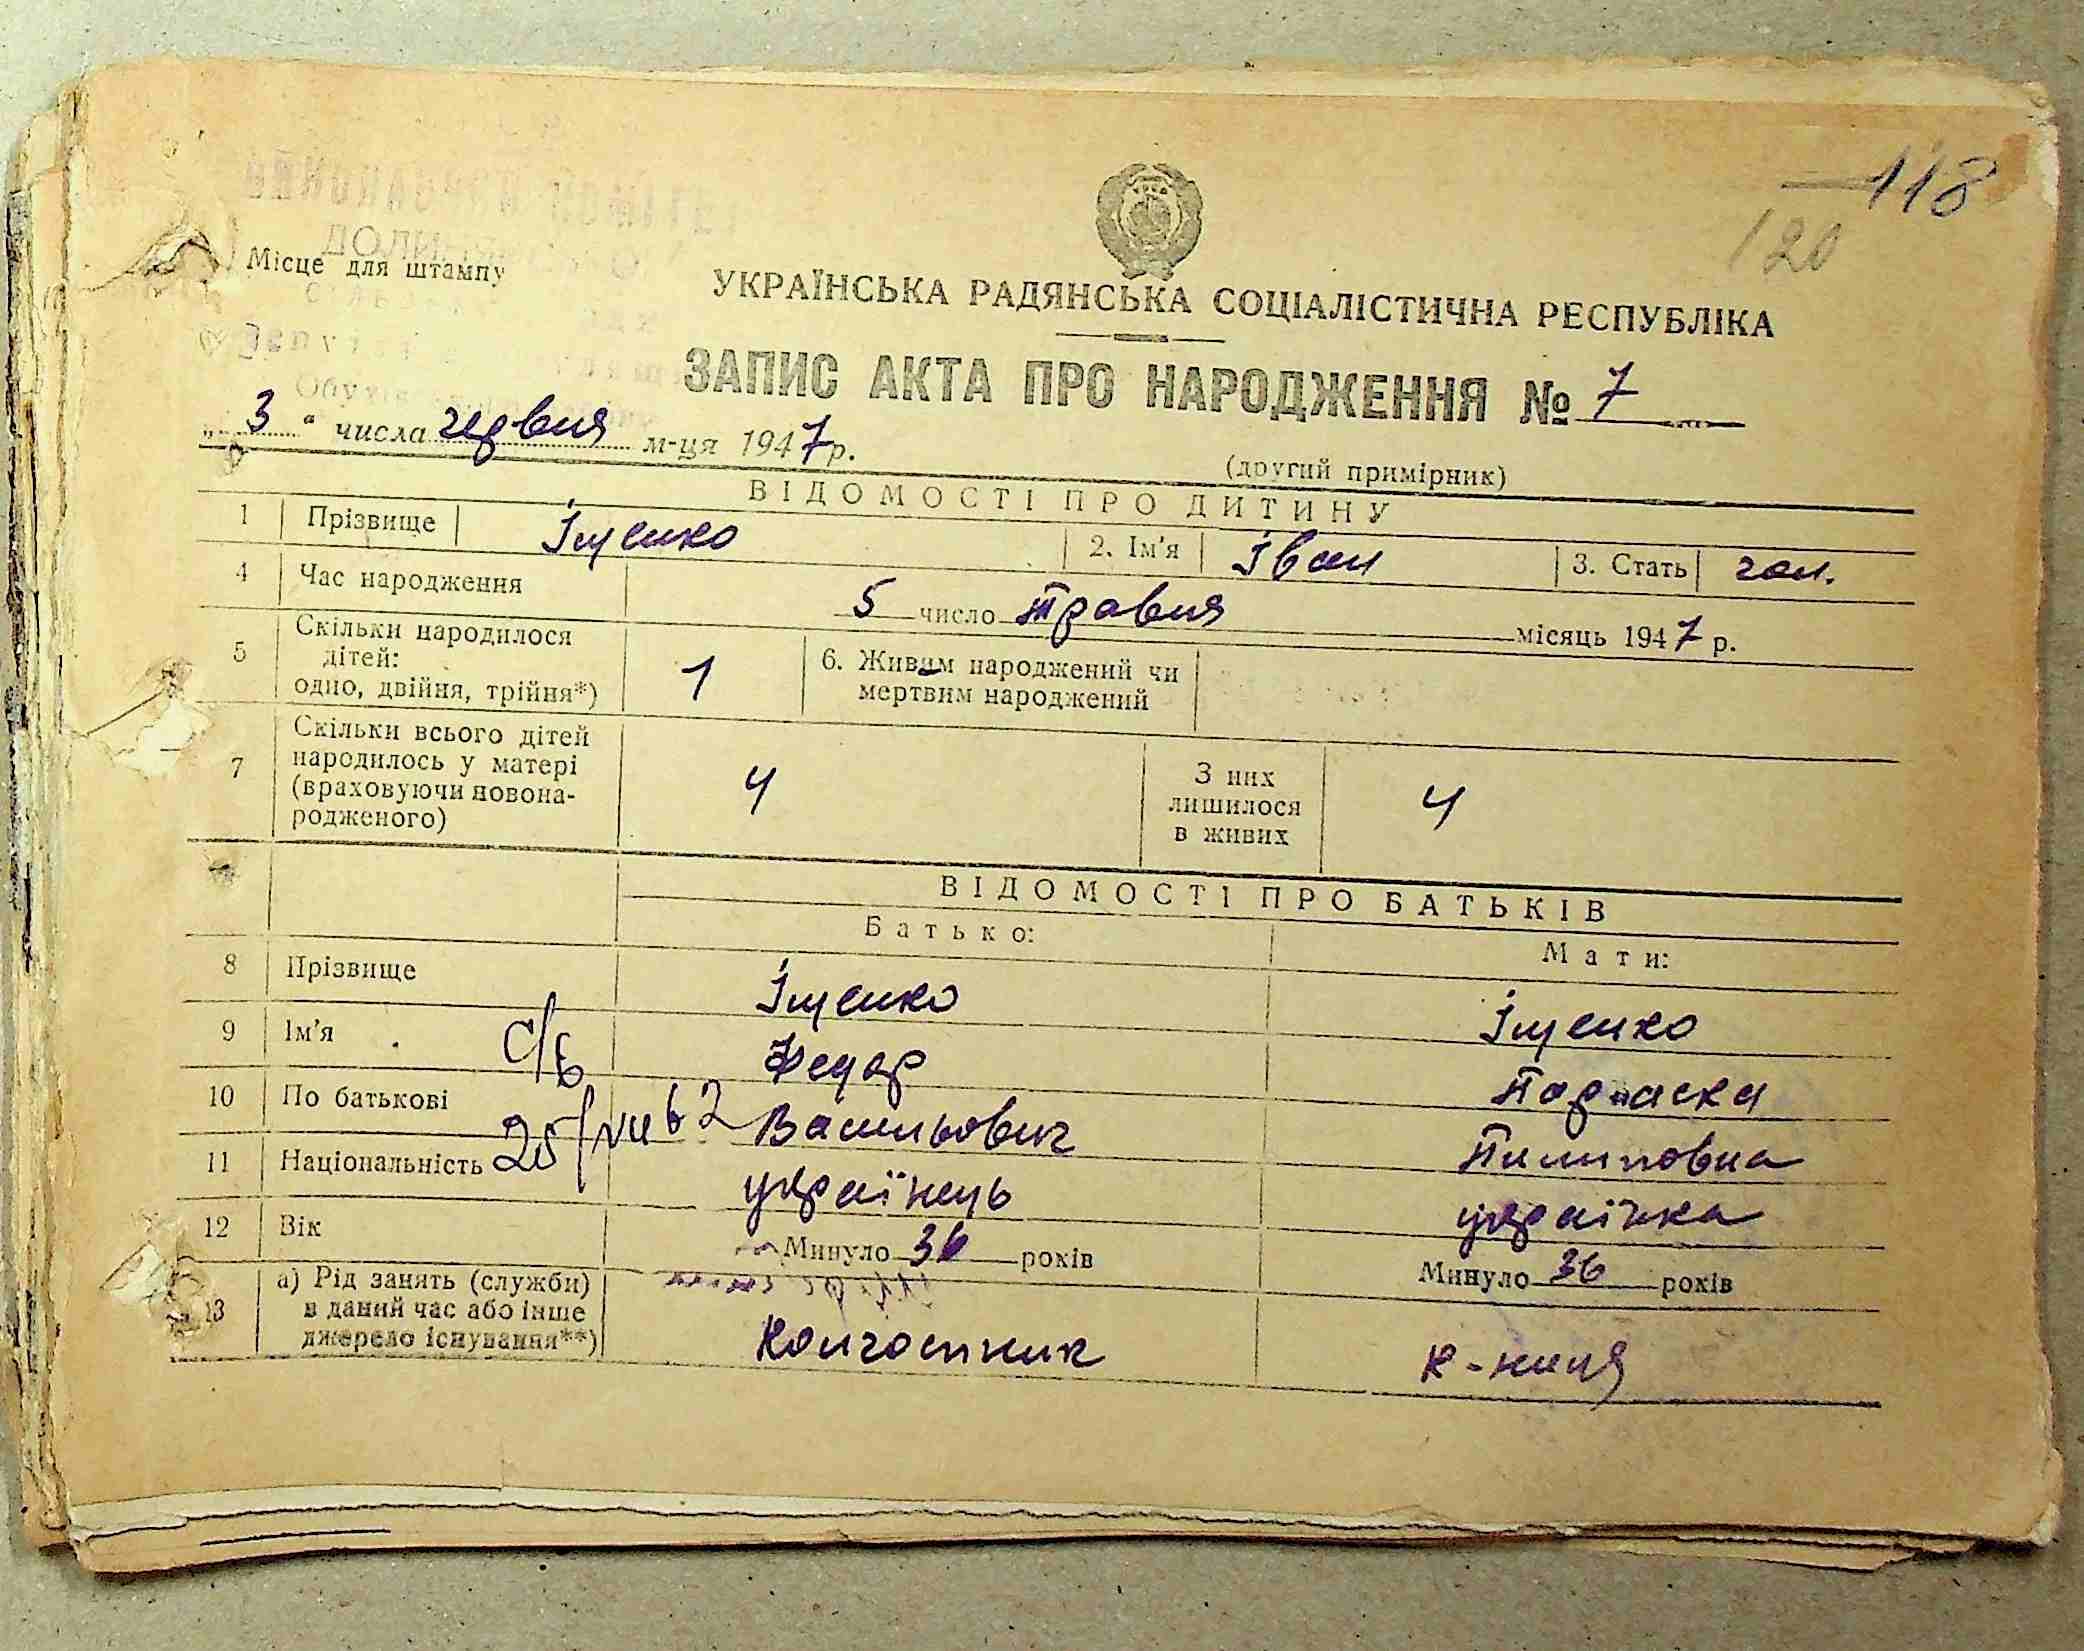 118
120
Місце для штампу
УКРАЇНСЬКА РАДЯНСЬКА СОЦІАЛІСТИЧНА РЕСПУБЛІКА
ЗАПИС АКТА ПРО НАРОДЖЕННЯ № 7
„3“ числа червня м-ця 1947 р.
(другий примірник)
ВІДОМОСТІ ПРО ДИТИНУ
1 Прізвище Іщенко 2. Ім'я Іван 3. Стать чол.
4 Час народження 5 число травня місяць 1947 р.
5 Скільки народилося
дітей:
одно, двійня, трійня*) 1
6. Живим народжений чи
мертвим народжений
7 Скільки всього дітей
народилось у матері
(враховуючи новона-
родженого) 4
З них
лишилося
в живих 4
ВІДОМОСТІ ПРО БАТЬКІВ
Батько: Мати:
8 Прізвище Іщенко Іщенко
9 Ім'я Федор Параска
10 По батькові Васильович Пилиповна
11 Національність українець українка
12 Вік Минуло 36 років Минуло 36 років
13 а) Рід занять (служби)
в даний час або інше
джерело існування**) Колгоспник к-ниця